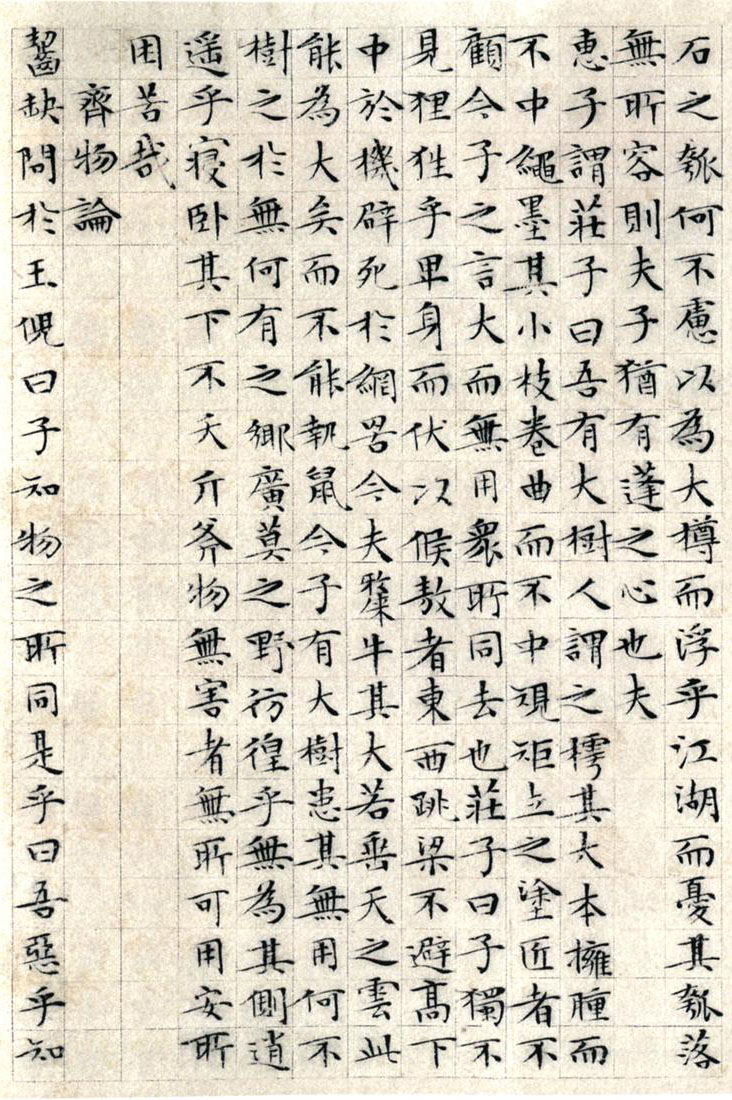 石之瓠何不慮以為大樽而浮乎江湖而憂其瓠落
無所容則夫子猶有蓬之心也夫
惠子謂莊子曰吾有大樹人謂之樗其大本擁腫而
不中繩墨其小枝卷曲而不中規矩立之塗匠者不
顧今子之言大而無用衆所同去也莊子曰子獨不
見狸狌乎卑身而伏以候敖者東西跳梁不避高下
中於機辟死於網罟今夫斄牛其大若垂天之雲此
能為大矣而不能執鼠今子有大樹患其無用何不
樹之於無何有之鄉廣莫之野彷徨乎無為其側逍
遥乎寢卧其下不夭斤斧物無害者無所可用安所
困苦哉
齊物論
齧缺問於王倪曰子知物之所同是乎曰吾惡乎知